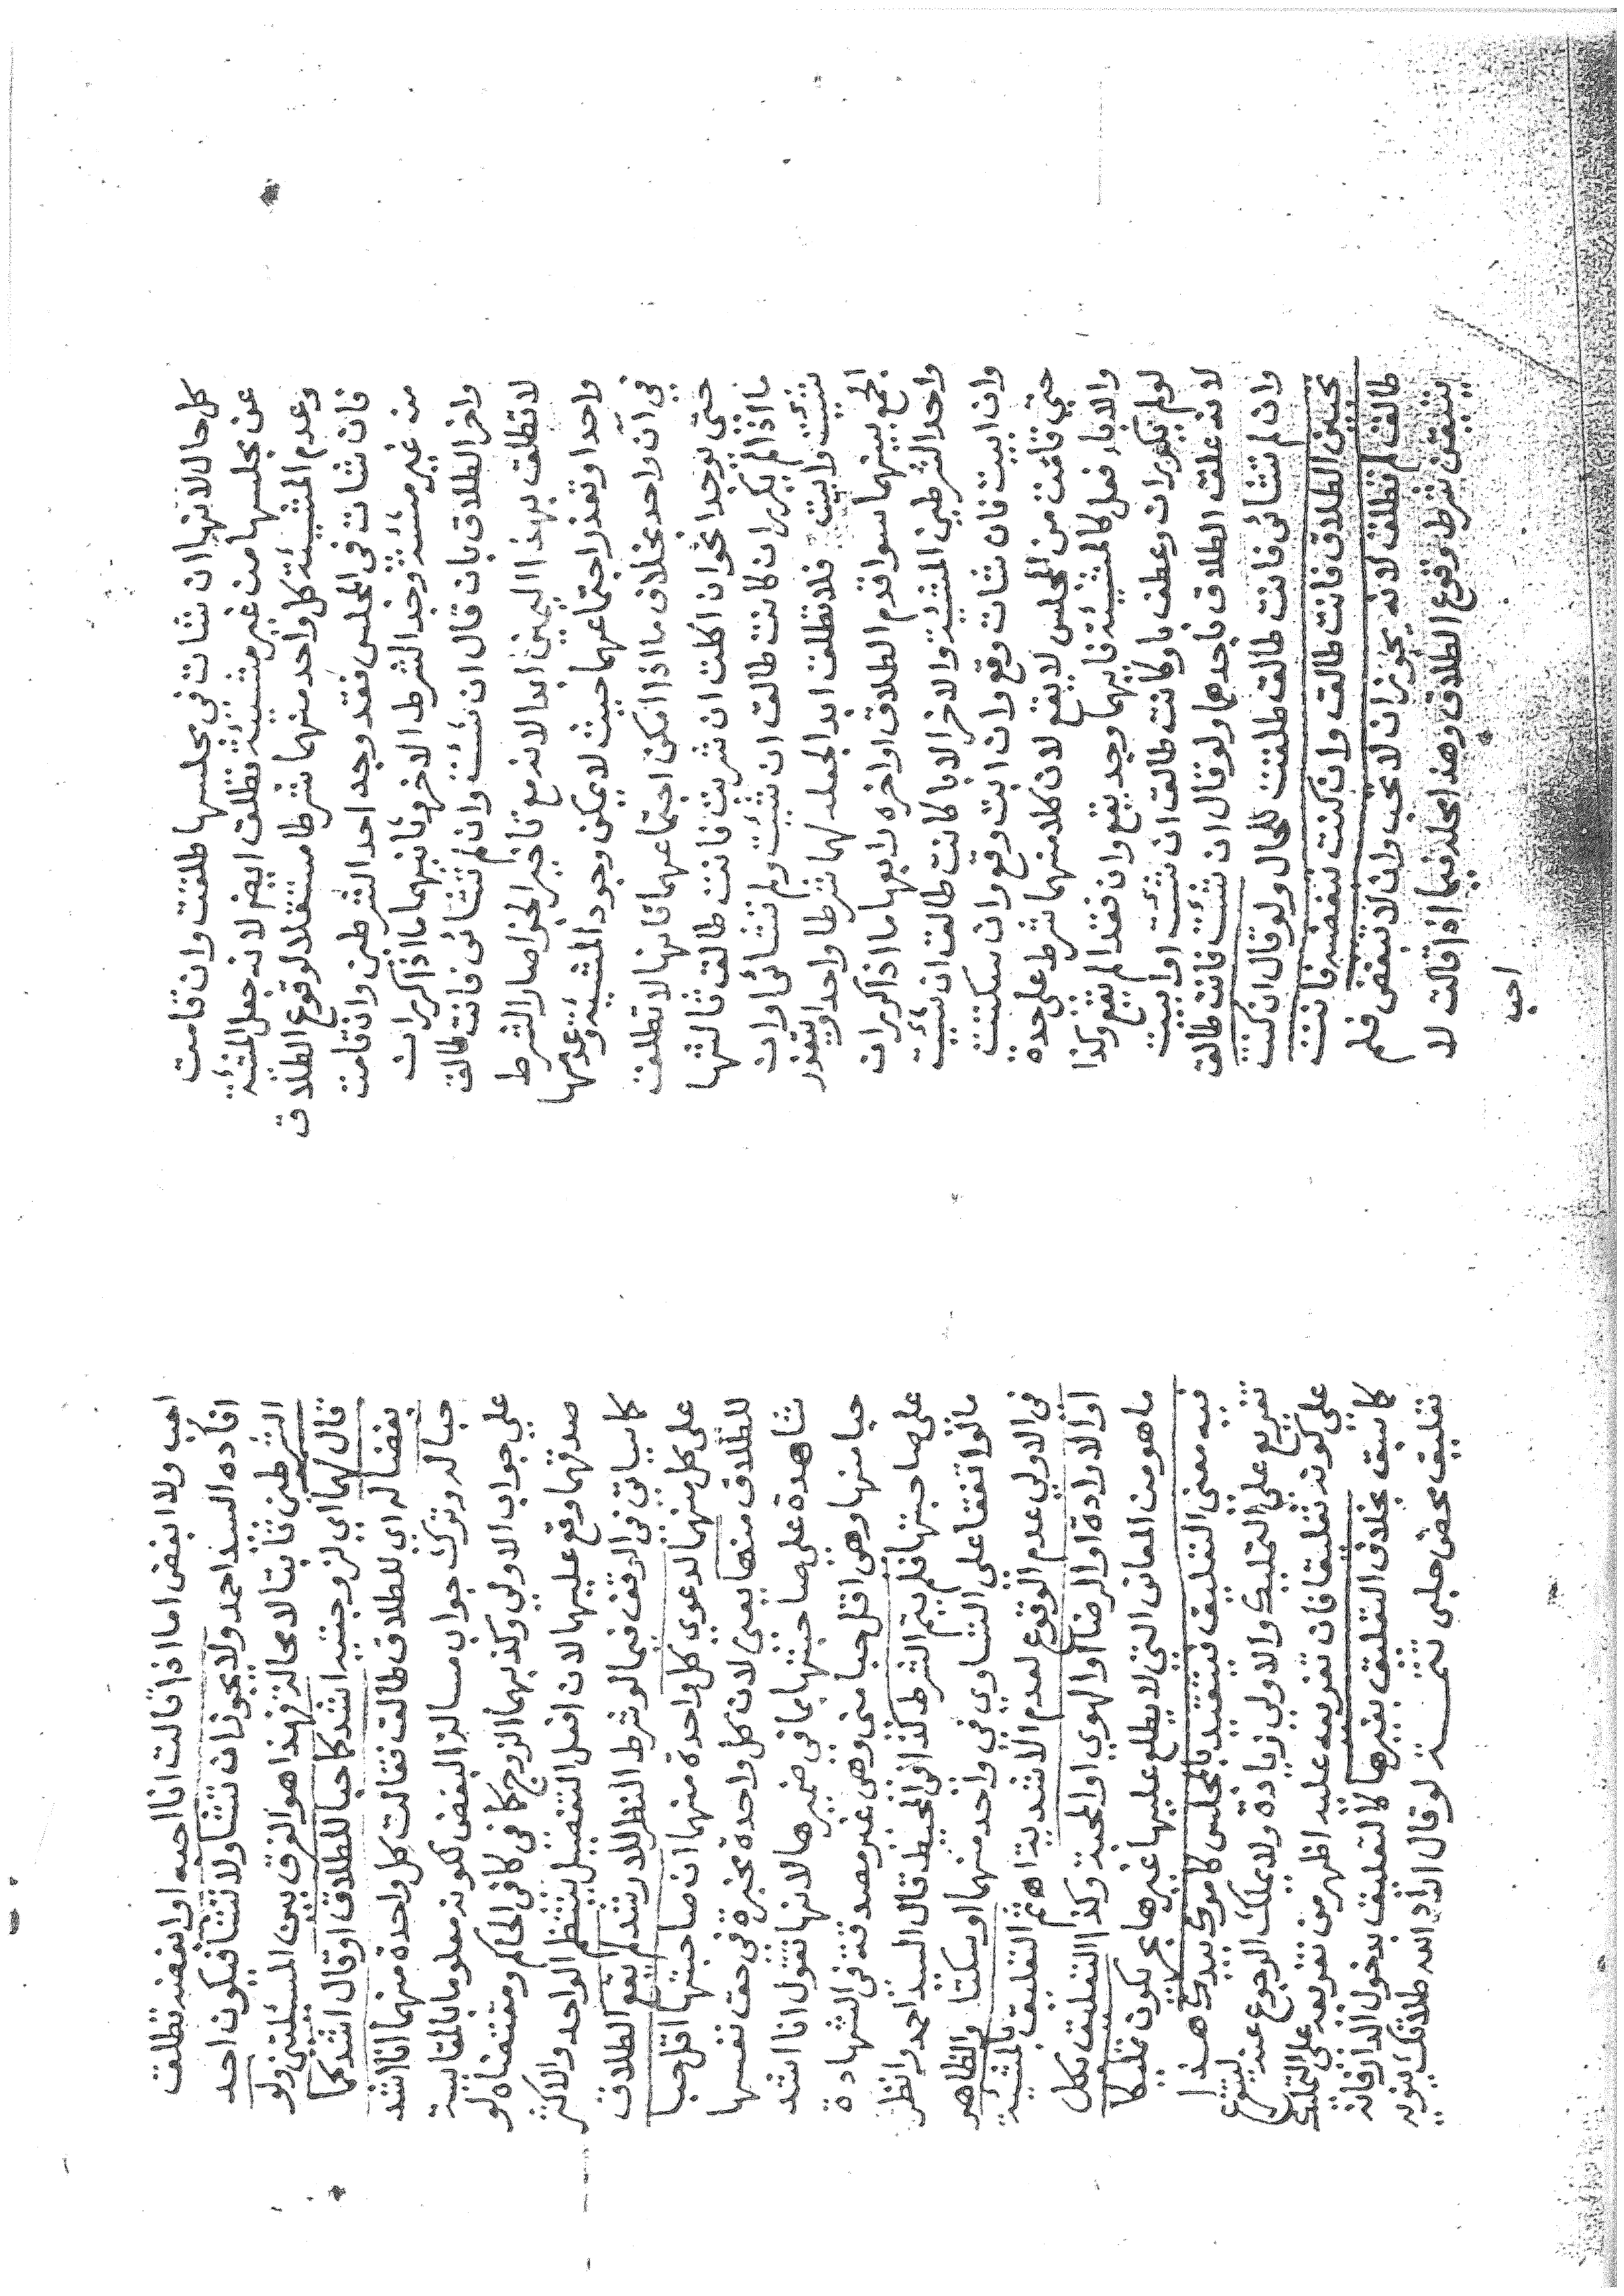 كل حال لانها ان شات في مجلسها طلقت وان قامت
عن مجلسها من غير مشيئة تطلق ايضا لانه جعل المشئة
وعدم المشيئة كل واحد منهما شرطا مستقلا لوقوع الطلاق
فان شات في المجلس فقد وجد احد الشرطين وان قامت
من غير مشئة وجد الشرط الاخر وثانيهما ما اذا كرر ان
واخر الطلاق بان قال ان شئت وان لم تشائي فانت طالق
لا تطلق بهذا اليمين ابدا لانه مع تاخير الجزا صار الشرط
واحدا وتعذر اجتماعهما حيث لا يمكن وجود المشيئة وعدمها
في ان واحد بخلاف ما اذا امكن اجتماعهما فانها لا تطلق
حتى يوجدا نحو ان اكلت ان شربت فانت طالق ثالثها
ما اذا لم يكرر ان كانت طالق ان شئت ولم تشائي او ان
شئت وابيت فلا تطلق ابدا لجعله لهما شرطا واحدا وبتعذر
الجمع بينهما سوا قدم الطلاق او اخره رابعها ما اذا كرر ان
واحد الشرطين المشيئة والاخر الابا كانت طالق ان شئت
وان ابيت فان شات وقع وان ابت وقع وان سكتت
حتى قامت من المجلس لا يقع لان كلا منهما شرط على حدة
والابا فعل كالمشيئة فايهما وجد يقع وان فقدا لم يقع وكذا
لو لم يكرر ان وعطف باو كانت طالق ان شئت او ابيت
لانه علق الطلاق باحدهما ولو قال ان شئت فانت طالق
وان لم تشائي فانت طالق طلقت للحال ولو قال ان كنت
تحبين الطلاق فانت طالق وان كنت تبغضيه فانت
طالق لم تطلق لانه يجوز ان لا تحب وان لا تبغض فلم
يتيقن شرط وقوع الطلاق وهذا محله فيما اذا قالت لا
احبه
احب ولا ابغض اما اذا قالت انا احبه او ابغضه تطلق
افاده السيد احمد ولا يجوز ان تشا ولا تشا فيكون احد
الشرطين ثابتا لا محالة فهذا هو الفرق بين المسئلتين ولو
قال لهما اي لزوجتيه اشدكما حبا للطلاق او قال اشدكما
بغضا له اي للطلاق طالق فقالت كل واحدة منهما انا اشد
حبا له وترك جواب مسالة البغض لكونه معلوما بالمقايسة
على جواب الاولى وكذبهما الزوج كافي كافي الحاكم ومقتضاه لو
صدقهما وقع عليهما لان افعل التفضيل ينتظم الواحد والاكثر
كما سياتي في الوقف فيما لو شرط النظر للارشد لم يقع الطلاق
على كل منهما لدعوى كل واحدة منهما ان صاحبتها اقل حبا
للطلاق منها يعني لان كل واحدة مخبرة في حق نفسها
شاهدة على صاحبتها بما في ضميرها لانها تقول انا اشد
حبا منها وهي اقل حبا مني وهي غير مصدقة في الشهادة
على صاحبتها فلم يتم الشرط كذا في المحيط قال السيد احمد وانظر
ما لو اتفقتا على التساوي في واحد منهما او سكتتا والظاهر
في الاولى عدم الوقوع لعدم الاشدية اه ثم التعليق بالمشيئة
او الارادة او الرضا او الهوى او المحبة وكذا التعليق بكل
ما هو من المعاني التي لا يطلع عليها غيرها يكون تمليكا
فيه معنى التعليق فتقيد بالمجلس كامرك بيدك هذا
تفريع على التمليك والاولى زيادة ولا يملك الرجوع عنه ليتفرع على التمليك
على كونه تعليقا فان تفريعه عليه اظهر من تفريعه
كما سبق بخلاف التعليق بغيرها كالتعليق بدخول الدار فانه
تعليق محض حلبي تتمـــة لو قال اراد الله طلاقك ينويه